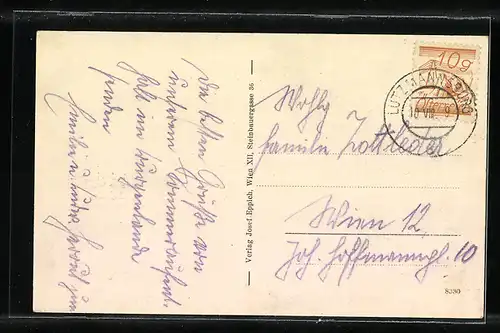 Die besten Grüße von
unserem Sommeraufent-
halt im Burgenlande
senden
Verlag Josef Eppich, Wien XII, Steinbauergasse 36
10g
LUTZMANNSBURG
Wohlg
Familie Zottleder
Wien 12
Joh. Hoffmanngl. 10
8380